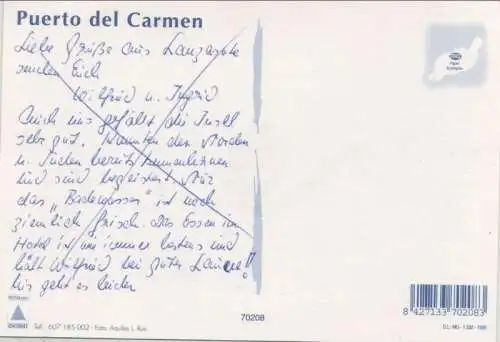 Puerto del Carmen
Liebe Grüße aus Lanzarote
senden Euch
Wilfried u. Ingrid
Auch uns gefällt die Insel
sehr gut. Konnten den Norden
u. Süden bereits kennenlernen
und sind begeistert. Nur
das „Badewasser" ist noch
ziemlich frisch. Das Essen im
Hotel ist wie immer bestens und
hält Wilfried bei guter Laune!
Uns geht es beiden
70208
8 427133 702083
Tel. 607 185 002 - Foto: Aquiles